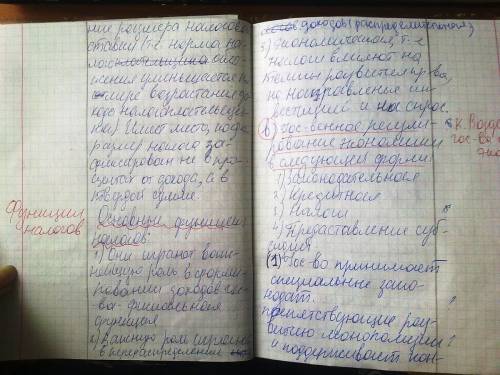 ние размера налоговой
ставки (т.е. норма на-
логообложения
уменьшается по
мере возрастания до-
хода налогоплательщи-
ка) Имеет место, когда
размер налога за-
фиксирован не в про-
центах от дохода, а в
твердой сумме.
Функции
налогов
Основные функции
налогов:
1) Они играют важ-
нейшую роль в форми-
ровании доходов гос-
ва - фискальная
функция
2) Важную роль играют
в перераспределении
доходов (распределительная)
3) Экономическая, т.е
налоги влияют на
темпы развития пр-ва,
на направление ин-
вестиций и на спрос.
6) Гос-венное регули-
рование экономики
в следующей форме:
1) Законодательная
2) Кредитная
3) Налоги
4) Предоставление суб-
сидий
(1) Гос-во принимает
специальные зако-
нодат.
препятствующие раз-
витию монополизма
и поддерживает кон-